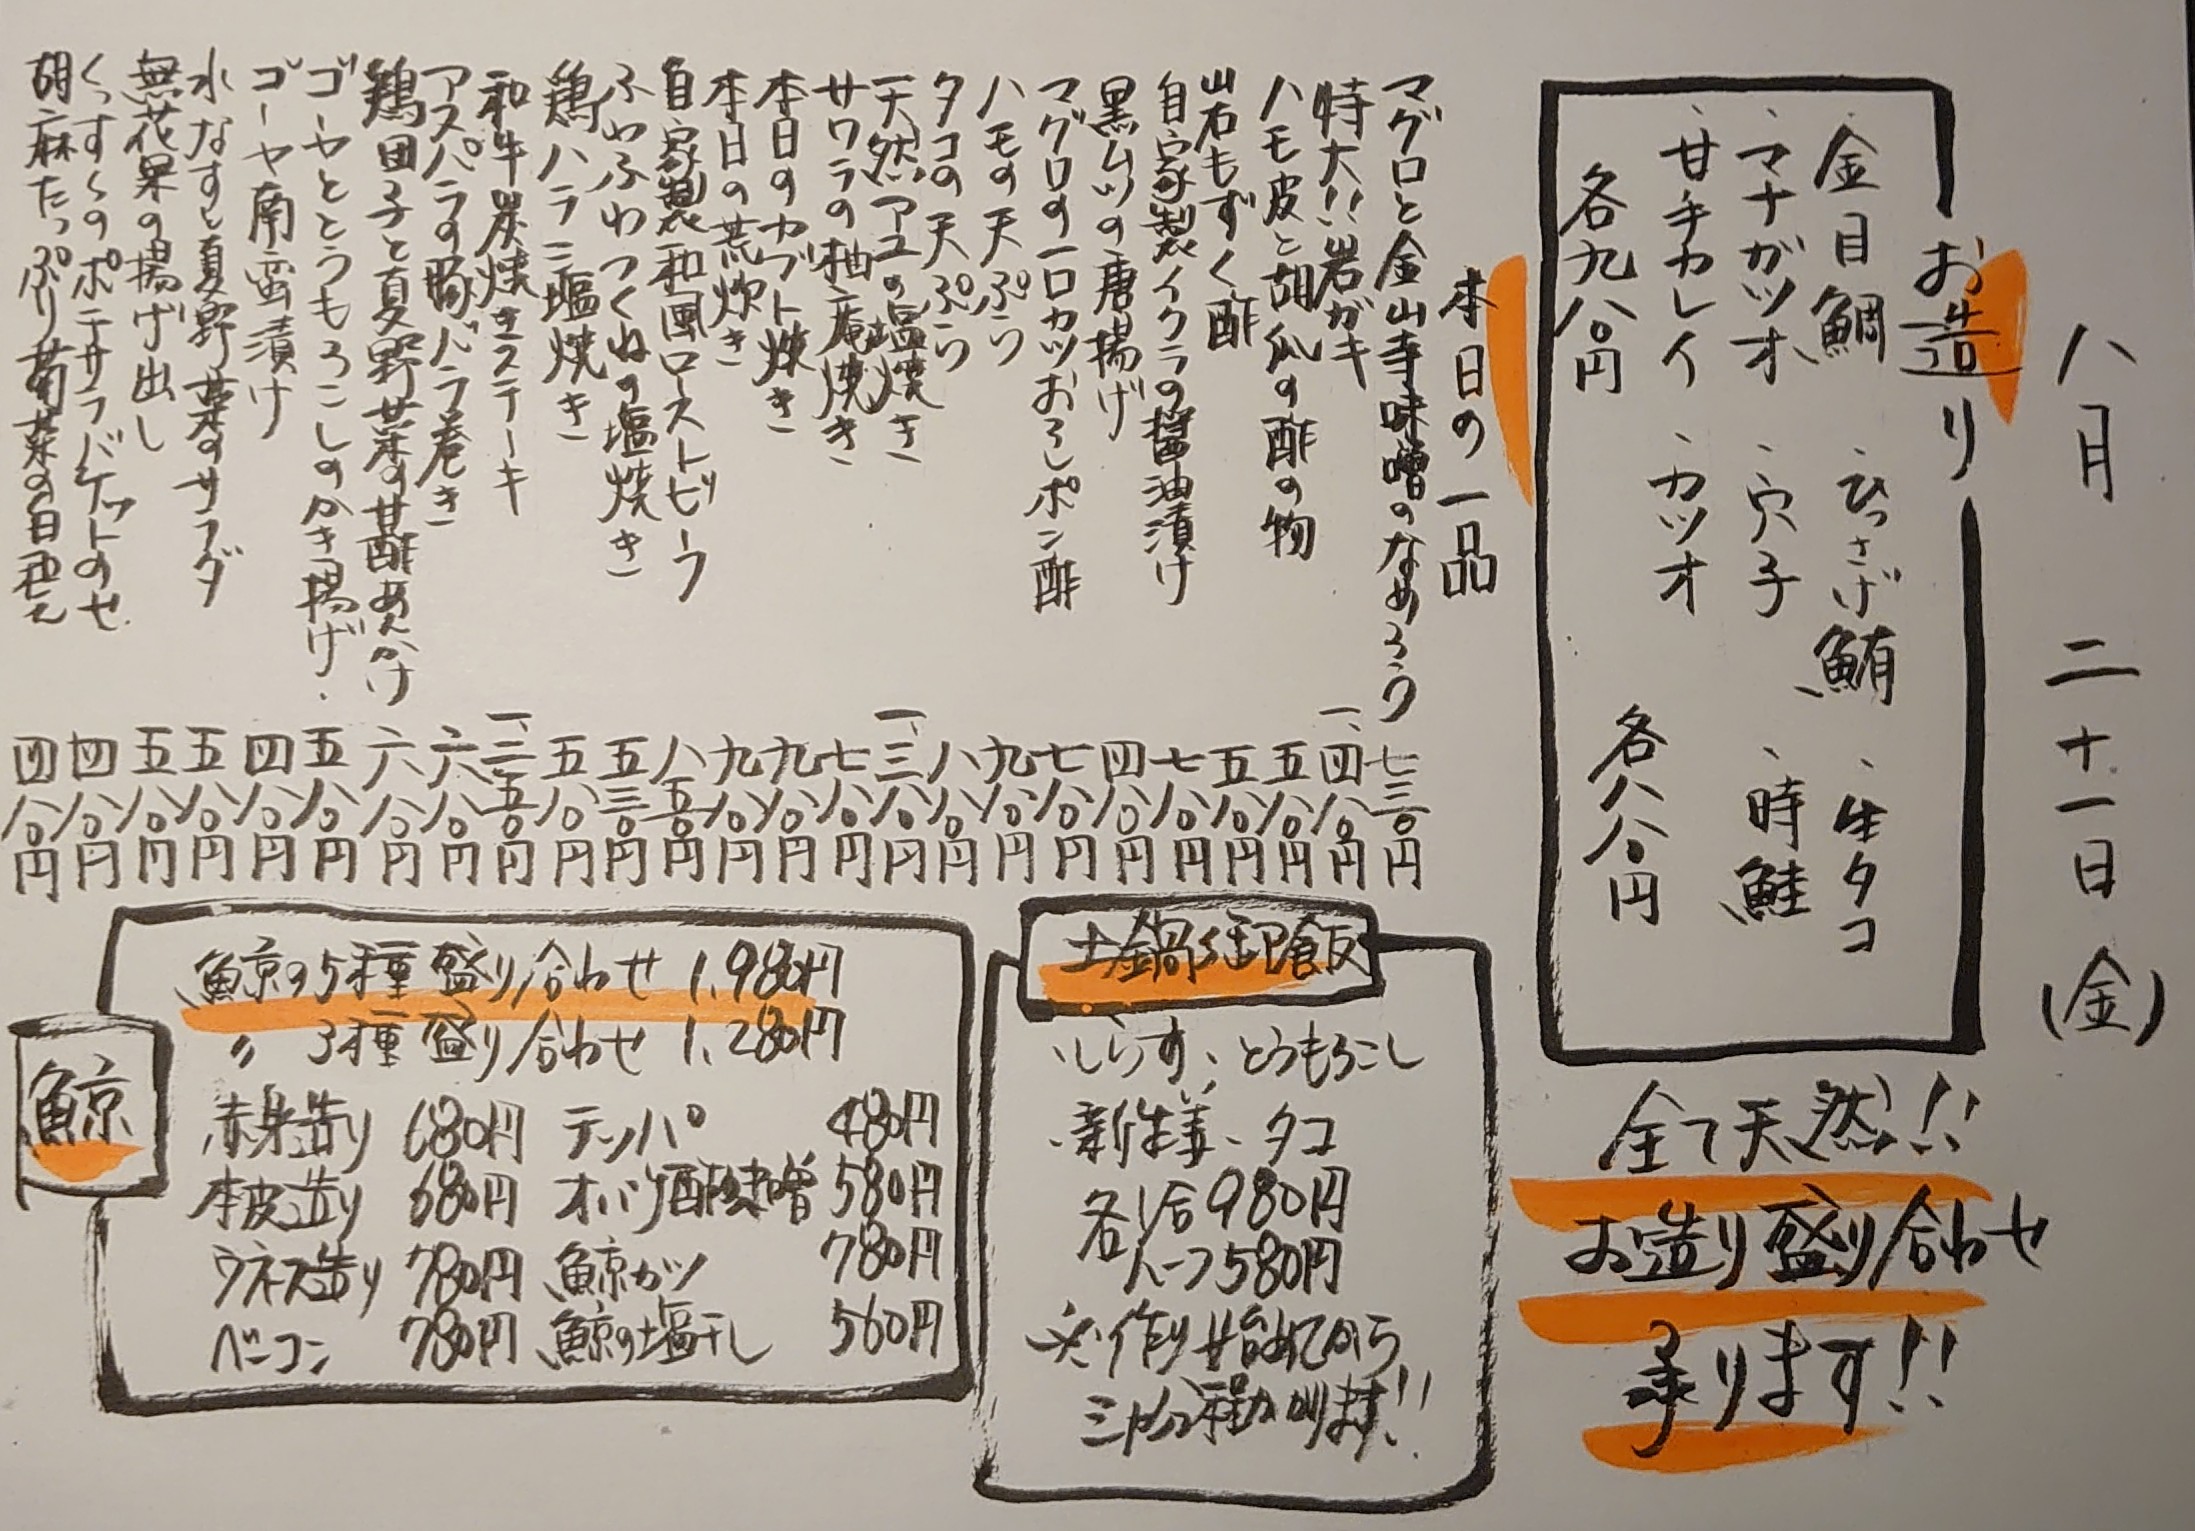 八月 二十一日(金)
お造り
、金目鯛 、ひっさげ鮪 、生タコ
、マナガツオ 、穴子 、時鮭
、甘手カレイ 、カツオ
各九八〇円 各八八〇円
全て天然!!
お造り盛り合わせ
承ります!!
本日の一品
マグロと金山寺味噌のなめろう 七三〇円
特大!!岩ガキ 一、四八〇円
ハモ皮と胡瓜の酢の物 五八〇円
岩もずく酢 五八〇円
自家製イクラの醤油漬け 七八〇円
黒ムツの唐揚げ 四八〇円
マグロの一口カツおろしポン酢 七八〇円
ハモの天ぷら 九八〇円
タコの天ぷら 八八〇円
天然アユの塩焼き 一、三八〇円
サワラの柚庵焼き 七八〇円
本日のカブト焼き 九八〇円
本日の荒炊き 九八〇円
自家製和風ローストビーフ 八五〇円
ふわふわつくねの塩焼き 五三〇円
鶏ハラミ塩焼き 五八〇円
和牛炭焼きステーキ 一、二五〇円
アスパラの豚バラ巻き 六八〇円
鶏団子と夏野菜の甘酢あんかけ 六八〇円
ゴーヤととうもろこしのかき揚げ 五八〇円
ゴーヤ南蛮漬け 四八〇円
水なすと夏野菜のサラダ 五八〇円
無花果の揚げ出し 五八〇円
くっすくのポテサラバケットのせ 四八〇円
胡麻たっぷり菊菜の白和え 四八〇円
土鍋御飯
、しらす、とうもろこし
、新生姜、タコ
各1合980円
ハーフ580円
※作り始めてから
三十分程かかります!!
鯨
鯨の5種盛り合わせ 1,980円
〃 3種盛り合わせ 1,280円
赤身造り 680円 テッパ 480円
本皮造り 680円 オバケ酢味噌 580円
ウネス造り 780円 鯨カツ 780円
ベーコン 780円 鯨の塩干し 560円